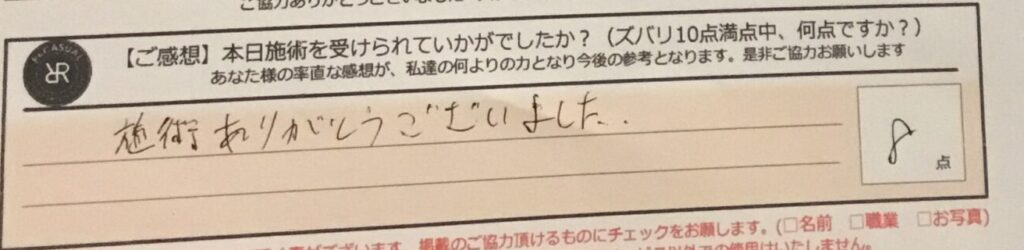 ご協力ありがとうございました
【ご感想】本日施術を受けられていかがでしたか？（ズバリ10点満点中、何点ですか？）
あなた様の率直な感想が、私達の何よりの力となり今後の参考となります。是非ご協力お願いします
施術ありがとうございました.
8点
掲載のご協力頂けるものにチェックをお願します。(□名前 □職業 □お写真)
使用はいたしません。